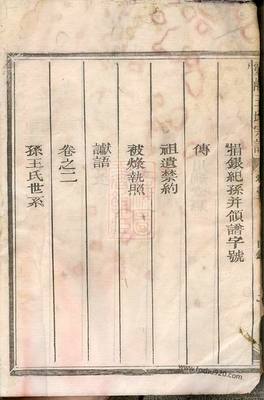 捐銀紀孫并領譜字號
傳
祖遺禁約
被燬執照
讞語
卷之二
孫王氏世系